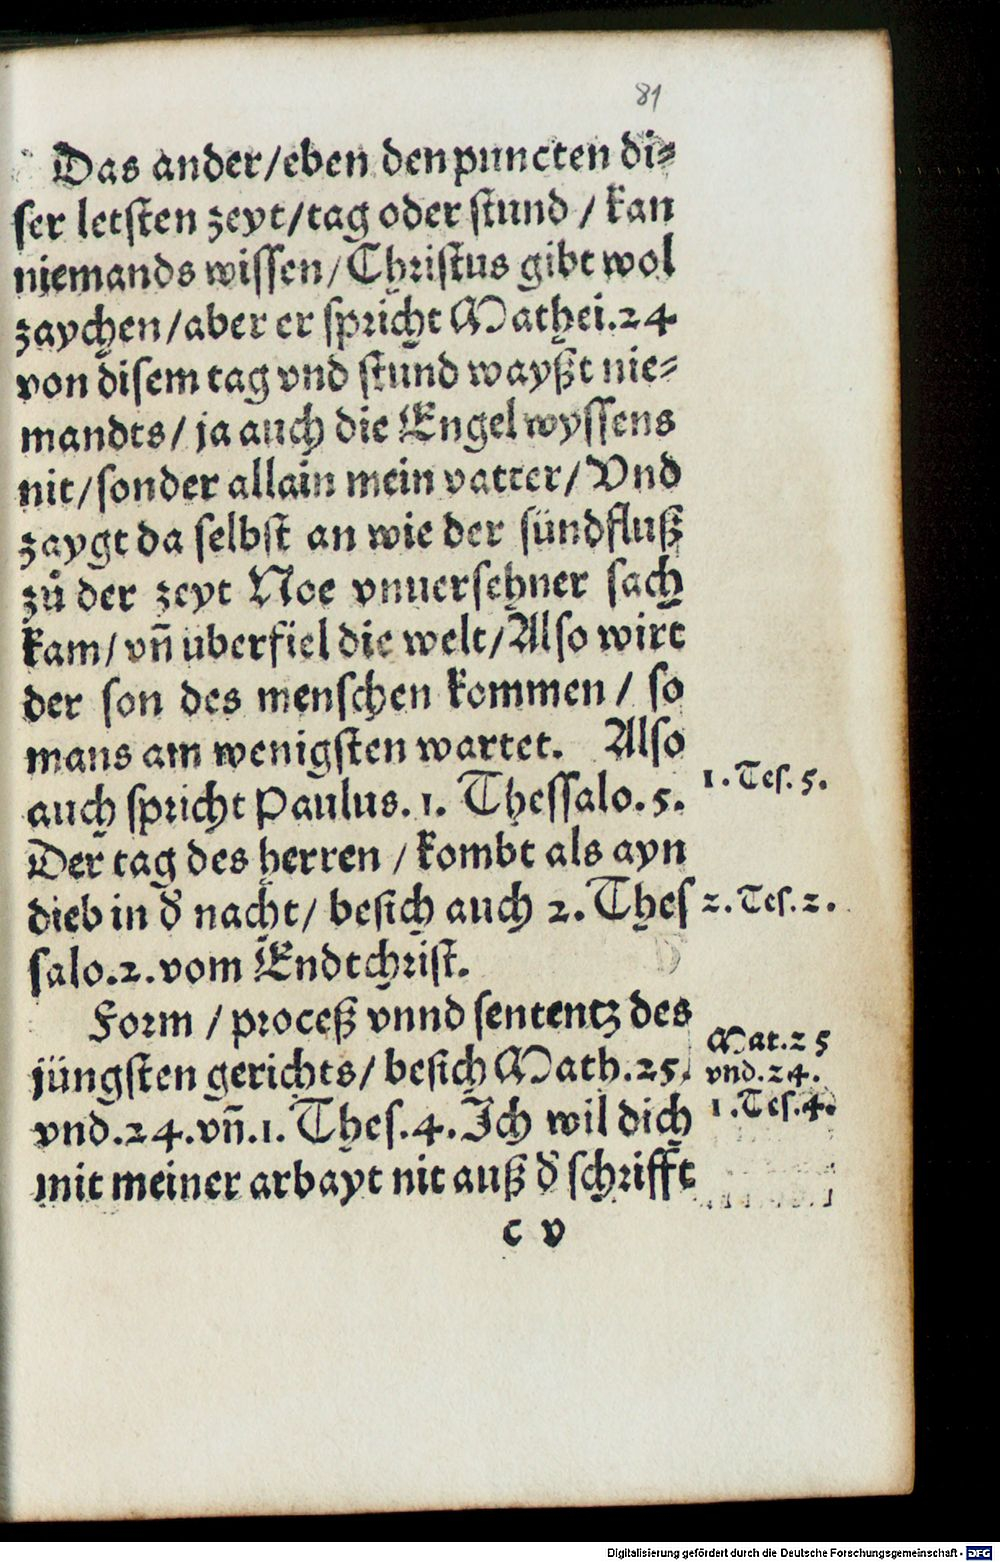 81
Das ander/eben den puncten di⸗
ser letsten zeyt/tag oder stund / kan
niemands wissen/Christus gibt wol
zaychen/aber er spricht Mathei.24
von disem tag vnd stund wayßt nie⸗
mandts/ ja auch die Engel wyssens
nit/sonder allain mein vatter/Vnd
zaygt da selbst an wie der sündfluß
zů der zeyt Noe vnuersehner sach
kam/ vñ uberfiel die welt/Also wirt
der son des menschen kommen / so
mans am wenigsten wartet. Also
auch spricht Paulus. 1. Thessalo. 5.
1. Tes. 5.
Der tag des herren / kombt als ayn
dieb in d̕ nacht/ besich auch 2. Thes
2. Tes. 2.
salo.2.vom Endtchrist.
Form / proceß vnnd sententz des
jüngsten gerichts/ besich Math.25.
vnd.24.vñ.1. Thes.4. Ich wil dich
mit meiner arbayt nit auß d̕ schrifft
Mat.25
vnd.24.
1.Tes.4.
c v
Digitalisierung gefördert durch die Deutsche Forschungsgemeinschaft - DFG